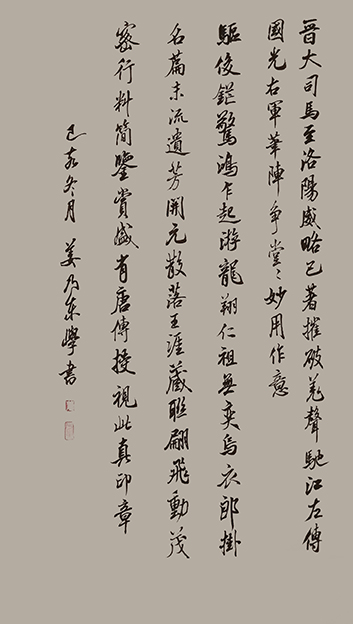 晉大司馬至洛陽威略已著摧破羌聲馳江左傳
國光右軍華陣爭堂〻妙用作意
驅俊鋩驚鴻乍起游龍翔仁祖無奕烏衣郎掛
名篇末流遺芳開元散落王涯藏聯翩飛動茂
密行料簡鑒賞盛有唐傳授視此真印章
己亥冬月 姜乃東學書